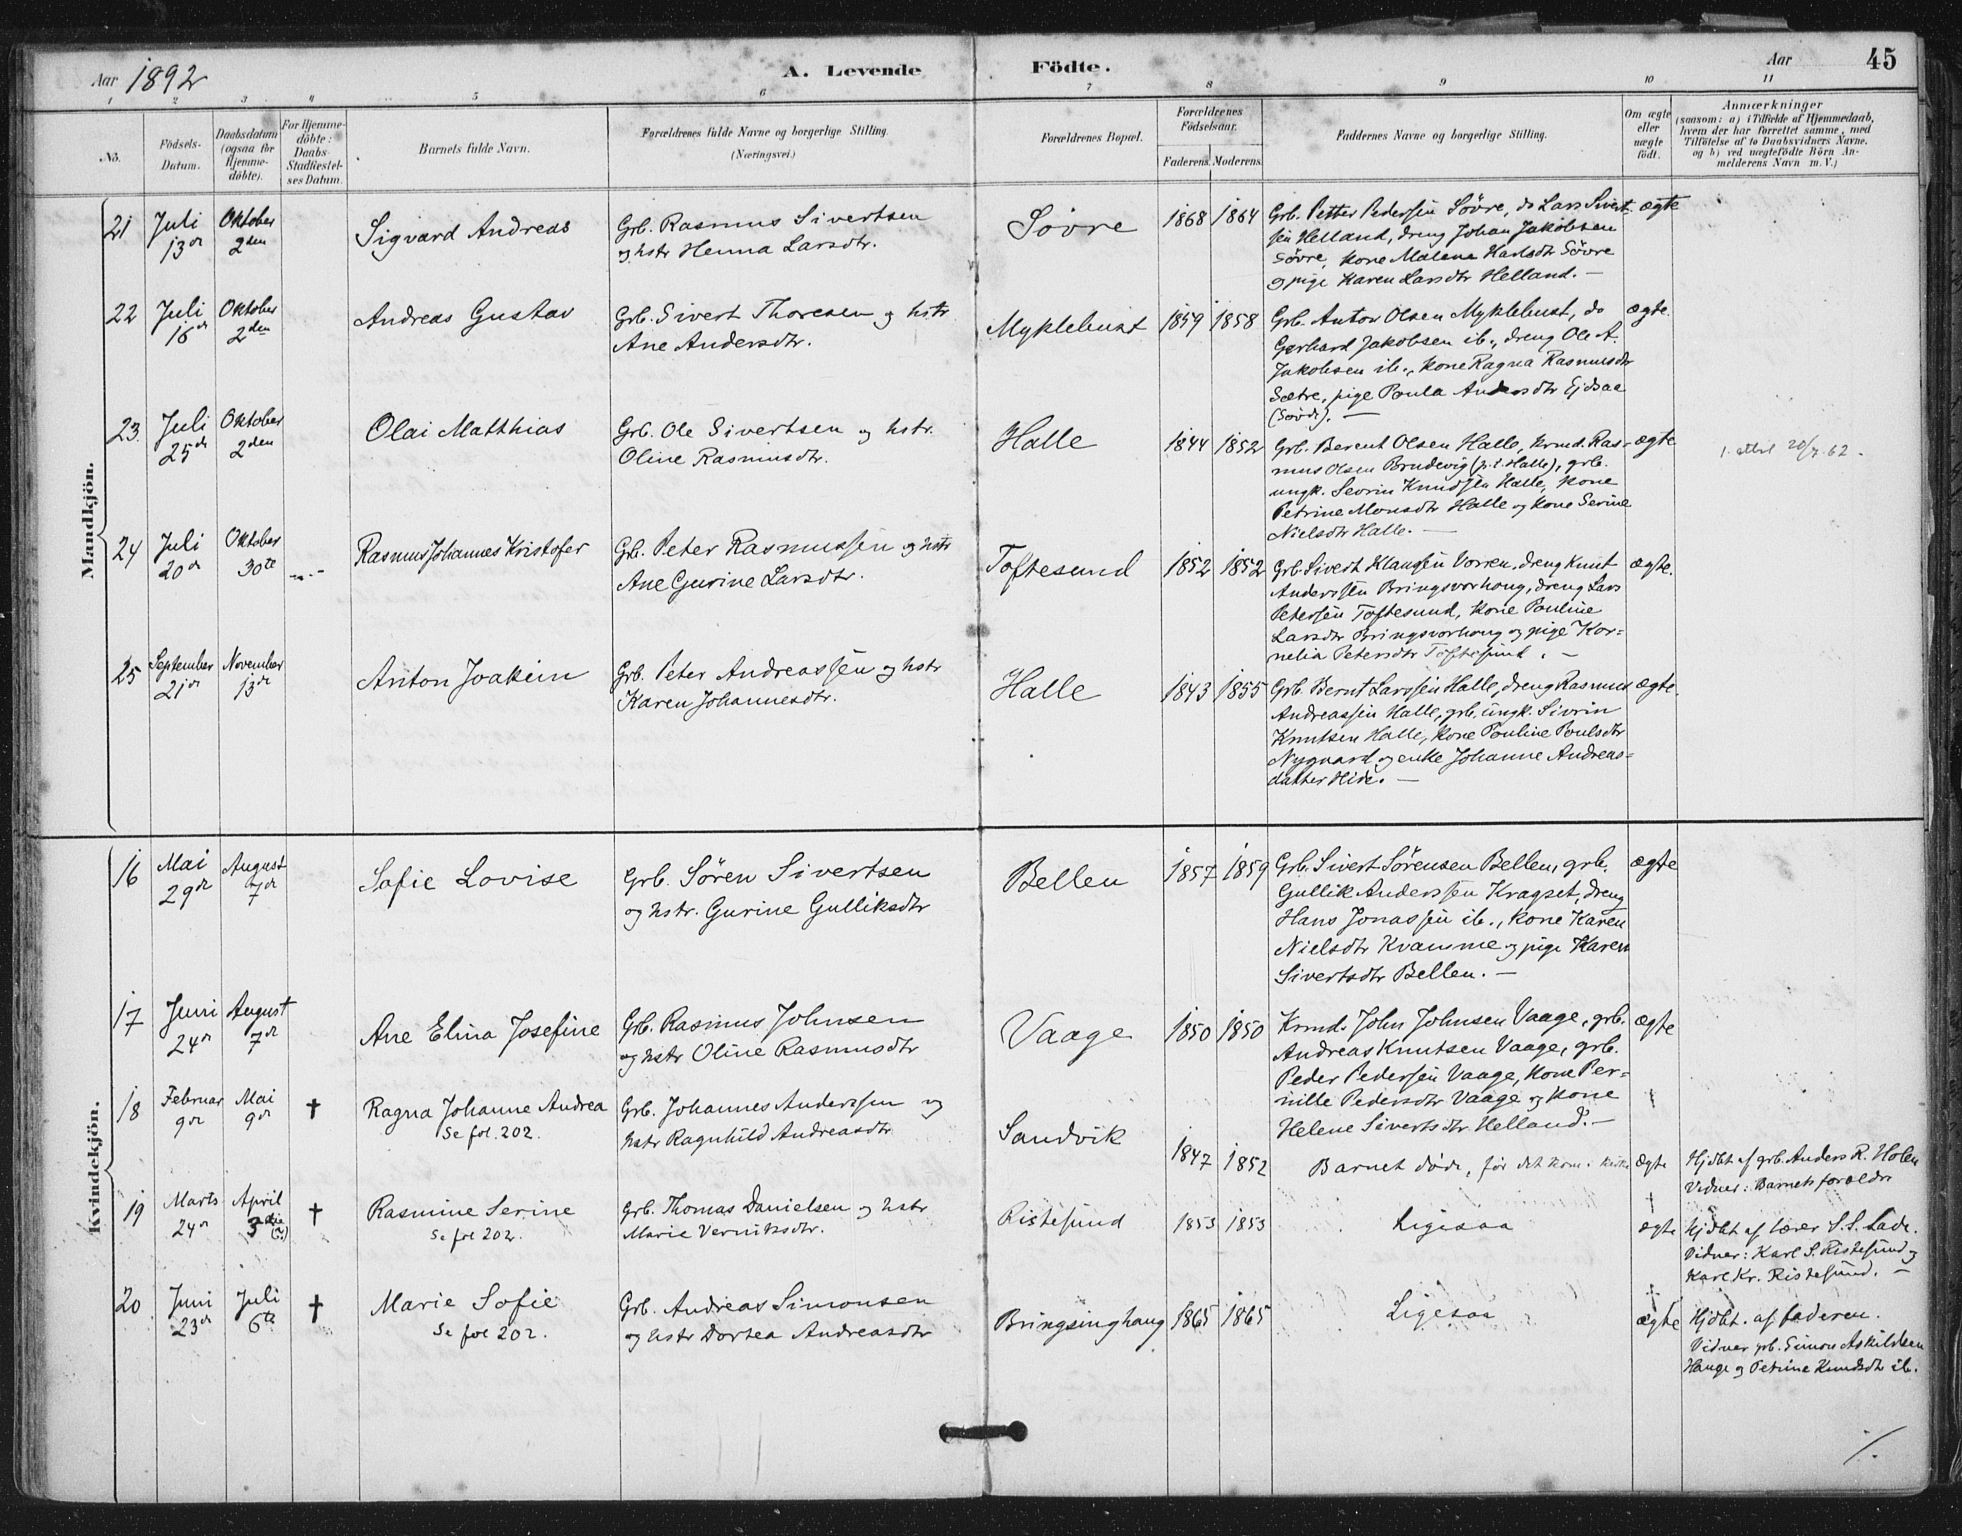 Aar 1892
A. Levende Födte.
Aar 45
1 2 3 4 5 6 7 8 9 10 11
No.
Födsels-
Datum.
Daabsdatum
(ogsaa for
Hjemme-
döbte).
For Hjemme-
döbte:
Daabs-
Stadfæstel-
ses Datum.
Barnets fulde Navn.
Forældrenes fulde Navne og borgerlige Stilling.
(Næringsvei.)
Forældrenes Bopæl.
Forældrenes
Födselsaar.
Faderens. Moderens.
Faddernes Navne og borgerlige Stilling.
Om ægte
eller
uægte
födt.
Anmærkninger
(saasom: a) i Tilfælde af Hjemmedaab,
hvem der har forrettet samme, med
Tilföielse af to Daabsvidners Navne,
og b) ved uægtefödte Börn An-
melderens Navn m. V.)
Mandkjön.
21 Juli 13de Oktober 2den
Sigvard Andreas
Grb. Rasmus Sivertsen
og hstr Henna Larsdtr.
Søvre
1868 1864
Grb. Petter Pedersen Søvre, do Lars Sivert-
sen Helland, dreng Johan Jakobsen
Søvre, kone Malene Karlsdtr Søvre
og pige Karen Larsdtr Helland. —
ægte
22 Juli 16de Oktober 2den
Andreas Gustav
Grb. Sivert Thoresen og hstr
Ane Andersdtr.
Myklebust
1859 1858
Grb. Anton Olsen Myklebust, do
Gerhard Jakobsen ib., dreng Ole A.
Jakobsen ib., kone Ragna Rasmusdtr
Sætre, pige Paula Andersdtr Ejdsaa
(Søvde). —
ægte.
23. Juli 25de Oktober 2den
Olai Matthias
Grb. Ole Sivertsen og hstr.
Oline Rasmusdtr.
Halle
1844 1852
Grb. Berent Olsen Halle, krmd. Ras-
mus Olsen Brudevig (p.t. Halle), grb.
ungk. Sevrin Knudsen Halle, kone
Petrine Monsdtr Halle og kone Serine
Nielsdtr Halle. —
ægte
1. attest 20/7.62.
24 Juli 20de Oktober 30te
Rasmus Johannes Kristofer
Grb. Peter Rasmussen og hstr
Ane Gurine Larsdtr.
Toftesund
1852 1852
Grb. Sivert Klausen Vorren, dreng Knut
Anderssen Bringsvorhoug, dreng Lars
Petersen Toftesund, kone Pauline
Larsdtr Bringsvorhoug og pige Kor=
nelia Petersdtr Toftesund. —
ægte.
25 September 21de November 13de
Anton Joakim
Grb. Peter Andreassen og hstr
Karen Johannesdtr.
Halle
1843 1855
Grb. Bernt Larssen Halle, dreng Rasmus
Andreassen Halle, grb. ungk. Sivrin
Knutsen Halle, kone Pauline Poulsdtr
Nygaard og enke Johanne Andreas=
datter Hide. —
ægte.
Kvindekjön.
16 Mai 29de August 7de
Sofie Lovise
Grb. Søren Sivertsen
og hstr. Gurine Gulliksdtr
Bellen
1857 1859
Grb. Sivert Sørensen Bellen, grb.
Gullik Anderssen Kragset, dreng
Hans Jonassen ib., kone Karen
Nielsdtr Kvamme og pige Karen
Sivertsdtr Bellen. —
ægte
17 Juni 24de August 7de
Ane Elina Josefine
Grb. Rasmus Johnsen
og hstr Oline Rasmusdtr
Vaage
1850 1850
Krmd. John Johnsen Vaage, grb.
Andreas Knutsen Vaage, grb.
Peder Pedersen Vaage, kone Per=
nille Pedersdtr Vaage og kone
Helene Sivertsdtr Helland. —
ægte
18 Februar 9de Mai 9de †
Ragna Johanne Andrea
Se fol. 202.
Grb. Johannes Anderssen og
hstr Ragnhild Andreasdtr
Sandvik
1847 1852
Barnet døde, før det kom i kirke
† ægte
Hjdbt af grb. Anders R. Holen
Vidner: Barnets forældre
19 Marts 24de April 3die (?) †
Rasmine Serine
Se fol 202.
Grb. Thomas Danielsen og hstr
Marie Verniksdtr.
Ristesund
1853 1853
Ligesaa
† ægte
Hjdbt af lærer S. S. Lade.
Vidner: Karl S. Ristesund og
Karl Kr. Ristesund. —
20 Juni 23de Juli 6te †
Marie Sofie
Se fol 202.
Grb. Andreas Simonsen
og hstr Dortea Andreasdtr
Bringsinghaug
1865 1865
Ligesaa
† ægte
Hjdbt. af faderen.
Vidner grb. Simon Askildsen
Hauge og Petrine Knudsdtr ib.